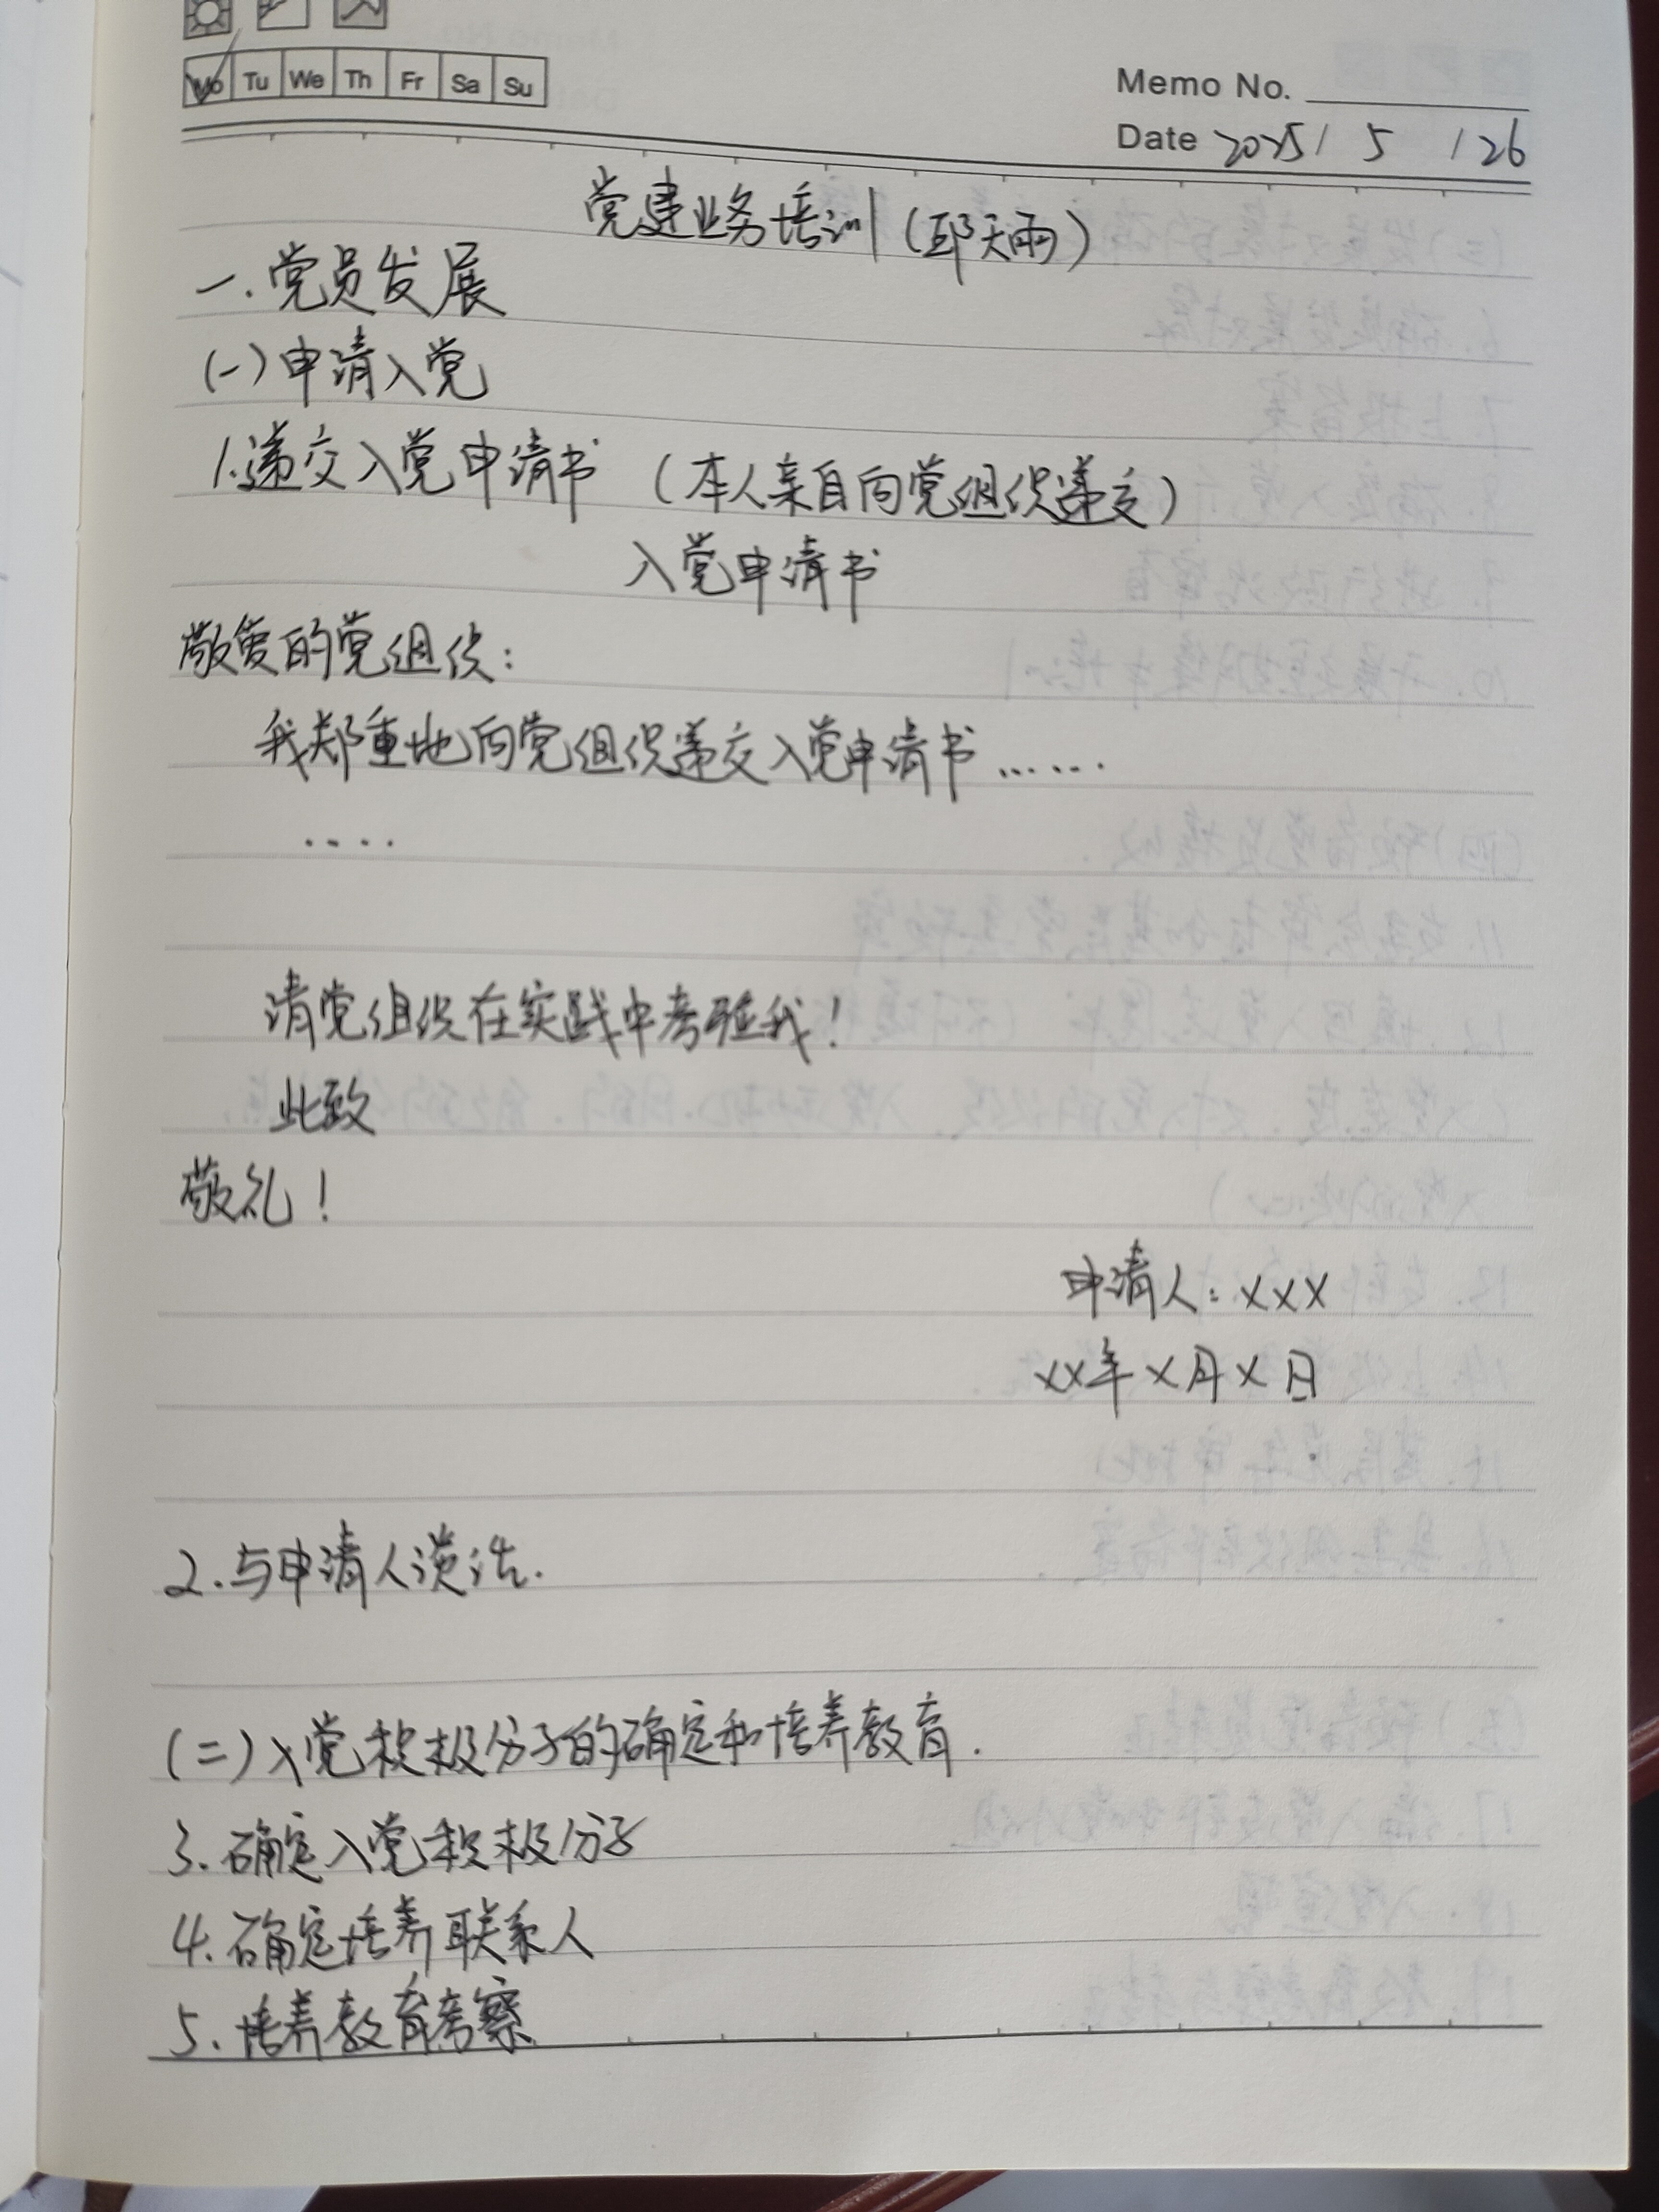 Mo Tu We Th Fr Sa Su
Memo No.
Date 2025/ 5 / 26
党建业务培训(邱天雨)
一.党员发展
(一)申请入党
1.递交入党申请书 (本人亲自向党组织递交)
入党申请书
敬爱的党组织:
我郑重地向党组织递交入党申请书……
....
请党组织在实践中考验我!
此致
敬礼!
申请人:XXX
XX年X月X日
2.与申请人谈话.
(二)入党积极分子的确定和培养教育.
3.确定入党积极分子
4.确定培养联系人
5.培养教育考察